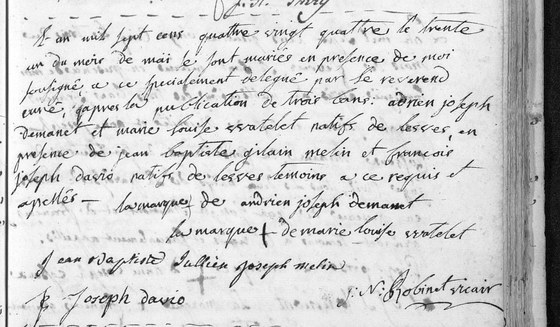 L an mil sept cens quattre vingt quattre le trente
un du mois de mai se sont mariés en presence de moi
soussigné, a ce specialement delegué par le reverend
curé, apres la publication de trois bans: adrien joseph
demanet et marie louise wratelet natifs de lesves, en
presence de jean baptiste gilain melin et francois
joseph davio natifs de lesves temoins a ce requis et
apellés —
la marque + de andrien joseph demanet
la marque + de marie louise wratelet
Jean Baptiste Jullien joseph melin
joseph davio
j. N. Robinet vicair